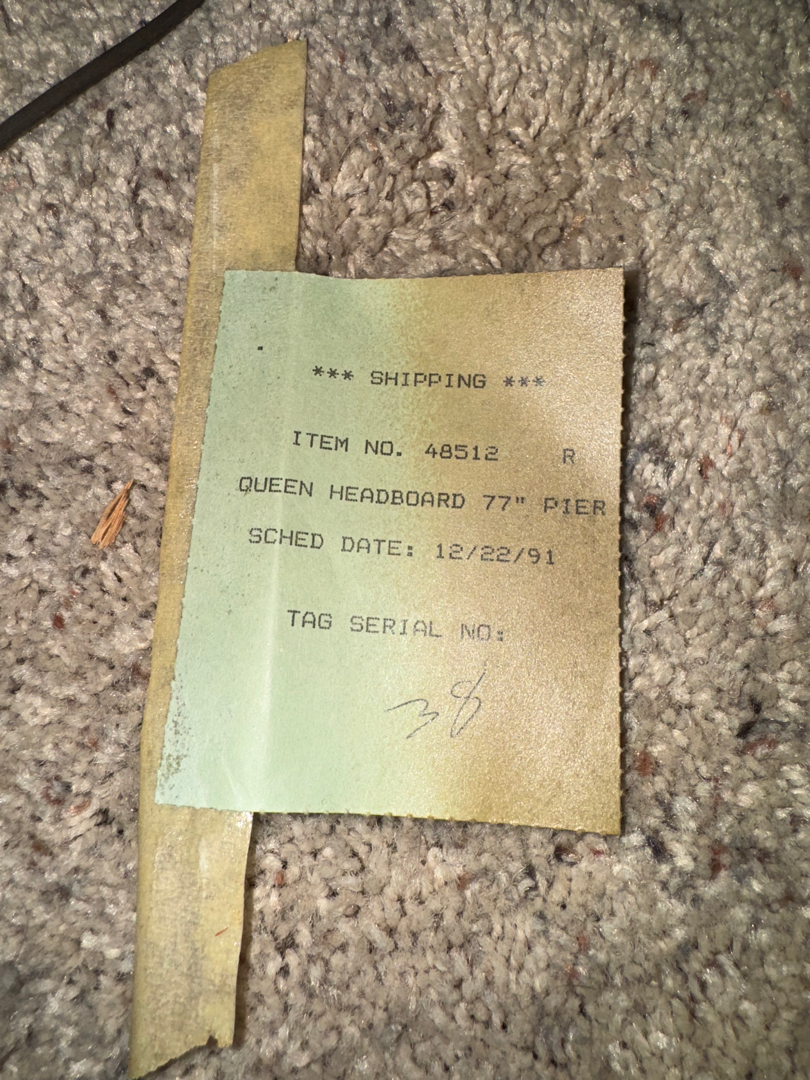 *** SHIPPING ***
ITEM NO. 48512 R
QUEEN HEADBOARD 77" PIER
SCHED DATE: 12/22/91
TAG SERIAL NO: